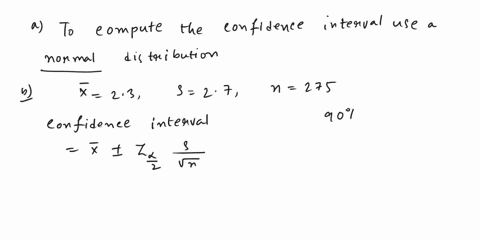 a) To compute the confidence interval use a
normal distribution
b) x̄ = 2.3, s = 2.7, n = 275
confidence interval 90%
= x̄ ± Z_{α/2} s/√n